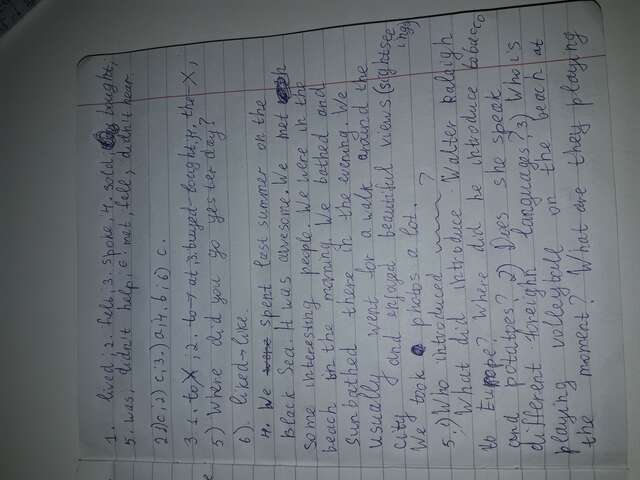 1. lived; 2. felt; 3. spoke, 4. sold, bought;
5. was, didn't help; 6. met, fell, didn't hear.
2.1) c; 2) c; 3.) a; 4. b; 6) c.
3. 1. to X; 2. to → at; 3. buyed - bought; 4. the X;
5) Where did you go yesterday?
6). liked → like.
4. We spent last summer on the
Black Sea. It was awesome. We met
some interesting people. We were in the
beach in the morning. We bathed and
sunbathed there in the evening. We
usually went for a walk around the
city and enjoyed beautiful views (sightsee
ings)
We took photos a lot.
5. 1) Who introduced ?
What did introduce Walter Raleigh
to Europe? Where did he introduce tobacco
and potatoes? 2) Does she speak
different foreighn languages? 3) Who is
playing volleyball on the beach at
the moment? What are they playing